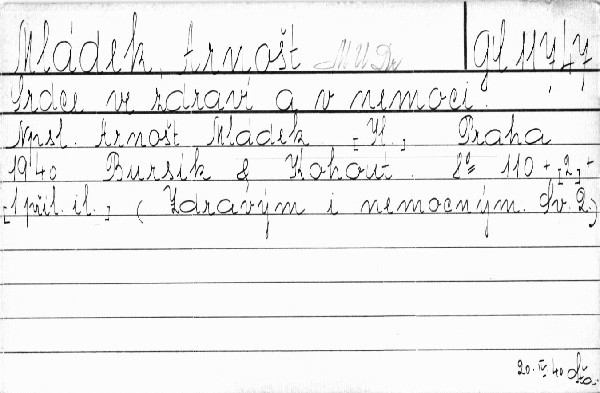 Mládek, Arnošt MUDr 
Srdce ve zdraví a v nemoci.
Npsl. Arnošt Mládek. [II.] Praha
1940 Bursík & Kohout. 8° 110 + [2] +
[1 příl. il.] (Zdravým i nemocným. Sv. 2.)
20. IV. 40